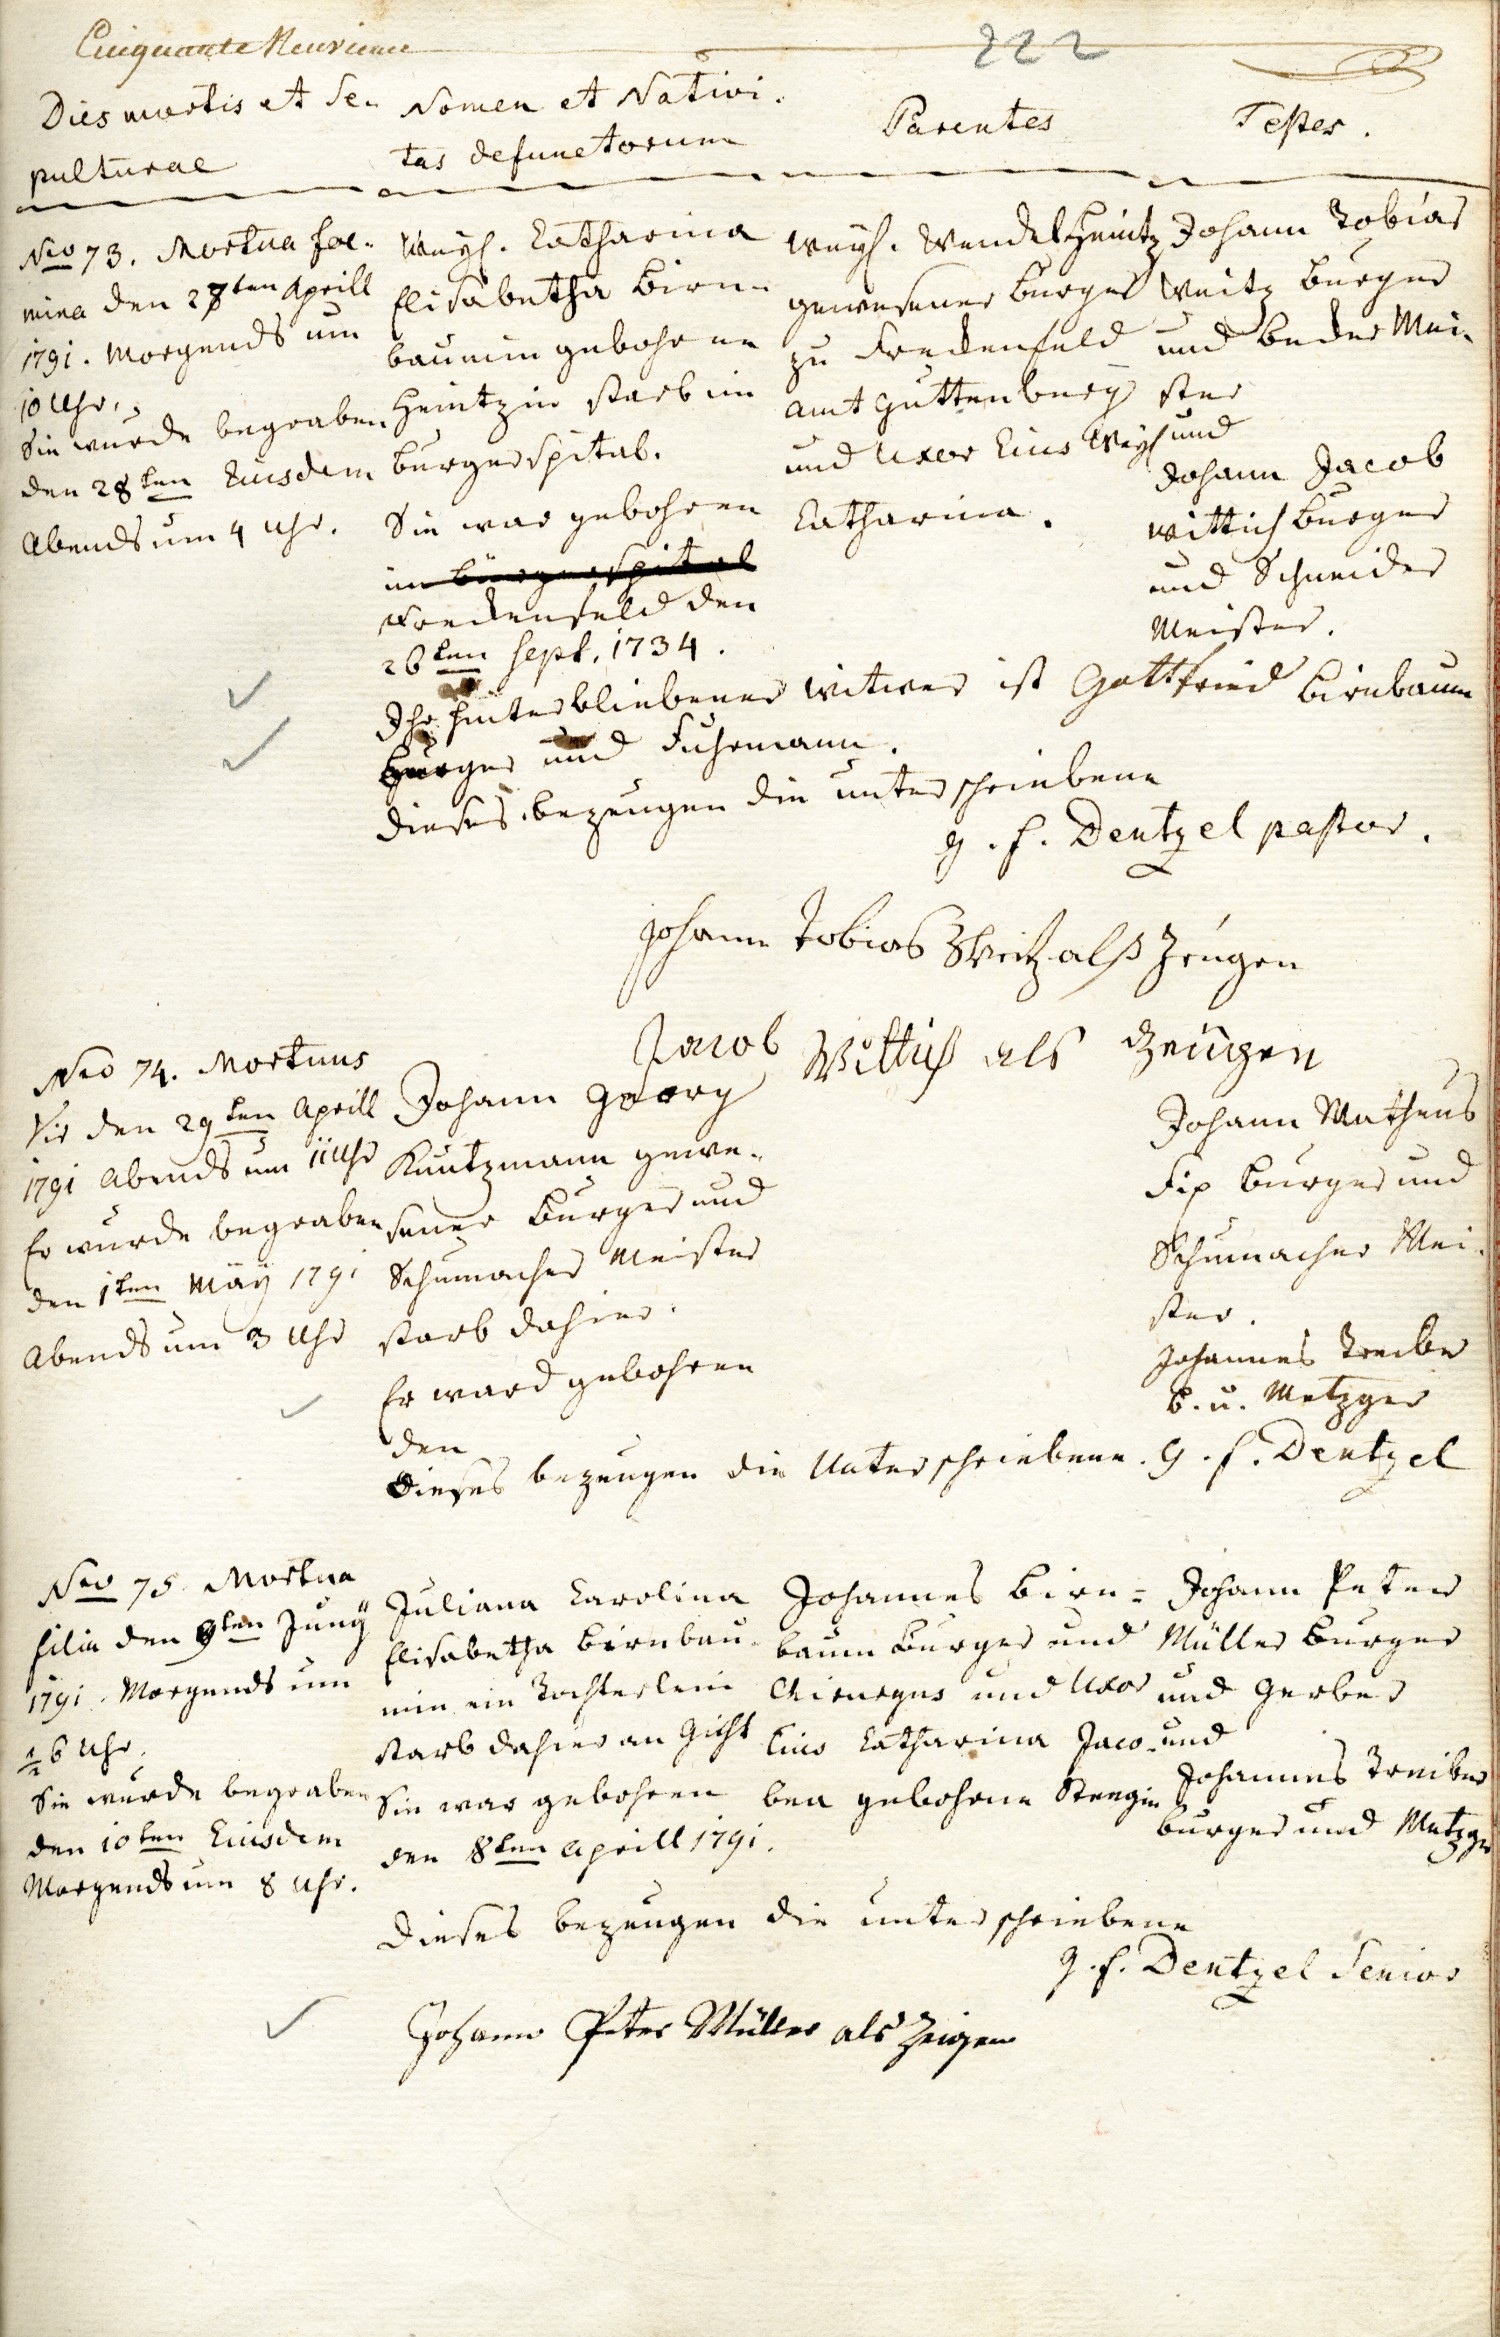 Cinquante Neuvieme
222
Dies mortis et Se-
pulturae
Nomen et Nativi-
tas defunctorum
Parentes
Testes.
Nro 73. Mortua foe-
mina den 27ten Aprill
1791. Morgends um
10 Uhr.
Sie wurde begraben
den 28ten Eiusdem
Abends um 4 Uhr.
Weyl. Catharina
Elisabetha Birn-
baumin gebohrne
Heintzin starb im
Burgerspital.
Sie war gebohren
im Bürgerspital
Freckenfeld den
26ten Sept. 1734.
Weyl. Wendel Heintz
gewesener Burger
zu Freckenfeld
Amt Guttenburg
und Uxor Eius Weyl
Catharina.
Johann Tobias
Weitz Burger
und Becker Mei-
ster
und
Johann Jacob
Wittich Burger
und Schneider
Meister.
Ihr hinterbliebener Witwer ist Gottfried Birnbaum
Burger und Fuhrmann.
Dieses bezeugen die unterschriebene
G. F. Dentzel pastor.
Johann Tobias Weitz alß Zeugen
Jacob Wittich als Zeügen
Nro 74. Mortuus
Vir den 29ten Aprill
1791 Abends um 11 Uhr
Er wurde begraben
den 1ten Mäÿ 1791
Abends um 3 Uhr
Johann Georg
Kuntzmann gewe-
sener Burger und
Schumacher Meister
starb dahier.
Er ward gebohren
den
Johann Matheus
Fix Burger und
Schumacher Mei-
ster.
Johannes Treiber
B. u. Metzger
Dieses bezeugen die Unterschriebene. G. F. Dentzel
Nro 75. Mortua
filia den 9ten Junÿ
1791. Morgends um
½ 6 Uhr.
Sie wurde begraben
den 10ten Eiusdem
Morgends um 8 Uhr.
Juliana Carolina
Elisabetha Birnbau-
min ein Töchterlein
starb dahier an Gicht
Sie war gebohren
den 8ten Aprill 1791.
Johannes Birn=
baum Burger und
Chirurgus und Uxor
Eius Catharina Jaco-
bea gebohrne Stengin
Johann Peter
Müller Burger
und Gerber
und
Johannes Treiber
Burger und Metzger
Dieses bezeugen die unterschriebene
G. F. Dentzel Senior
Johann Peter Müller als Zeigen